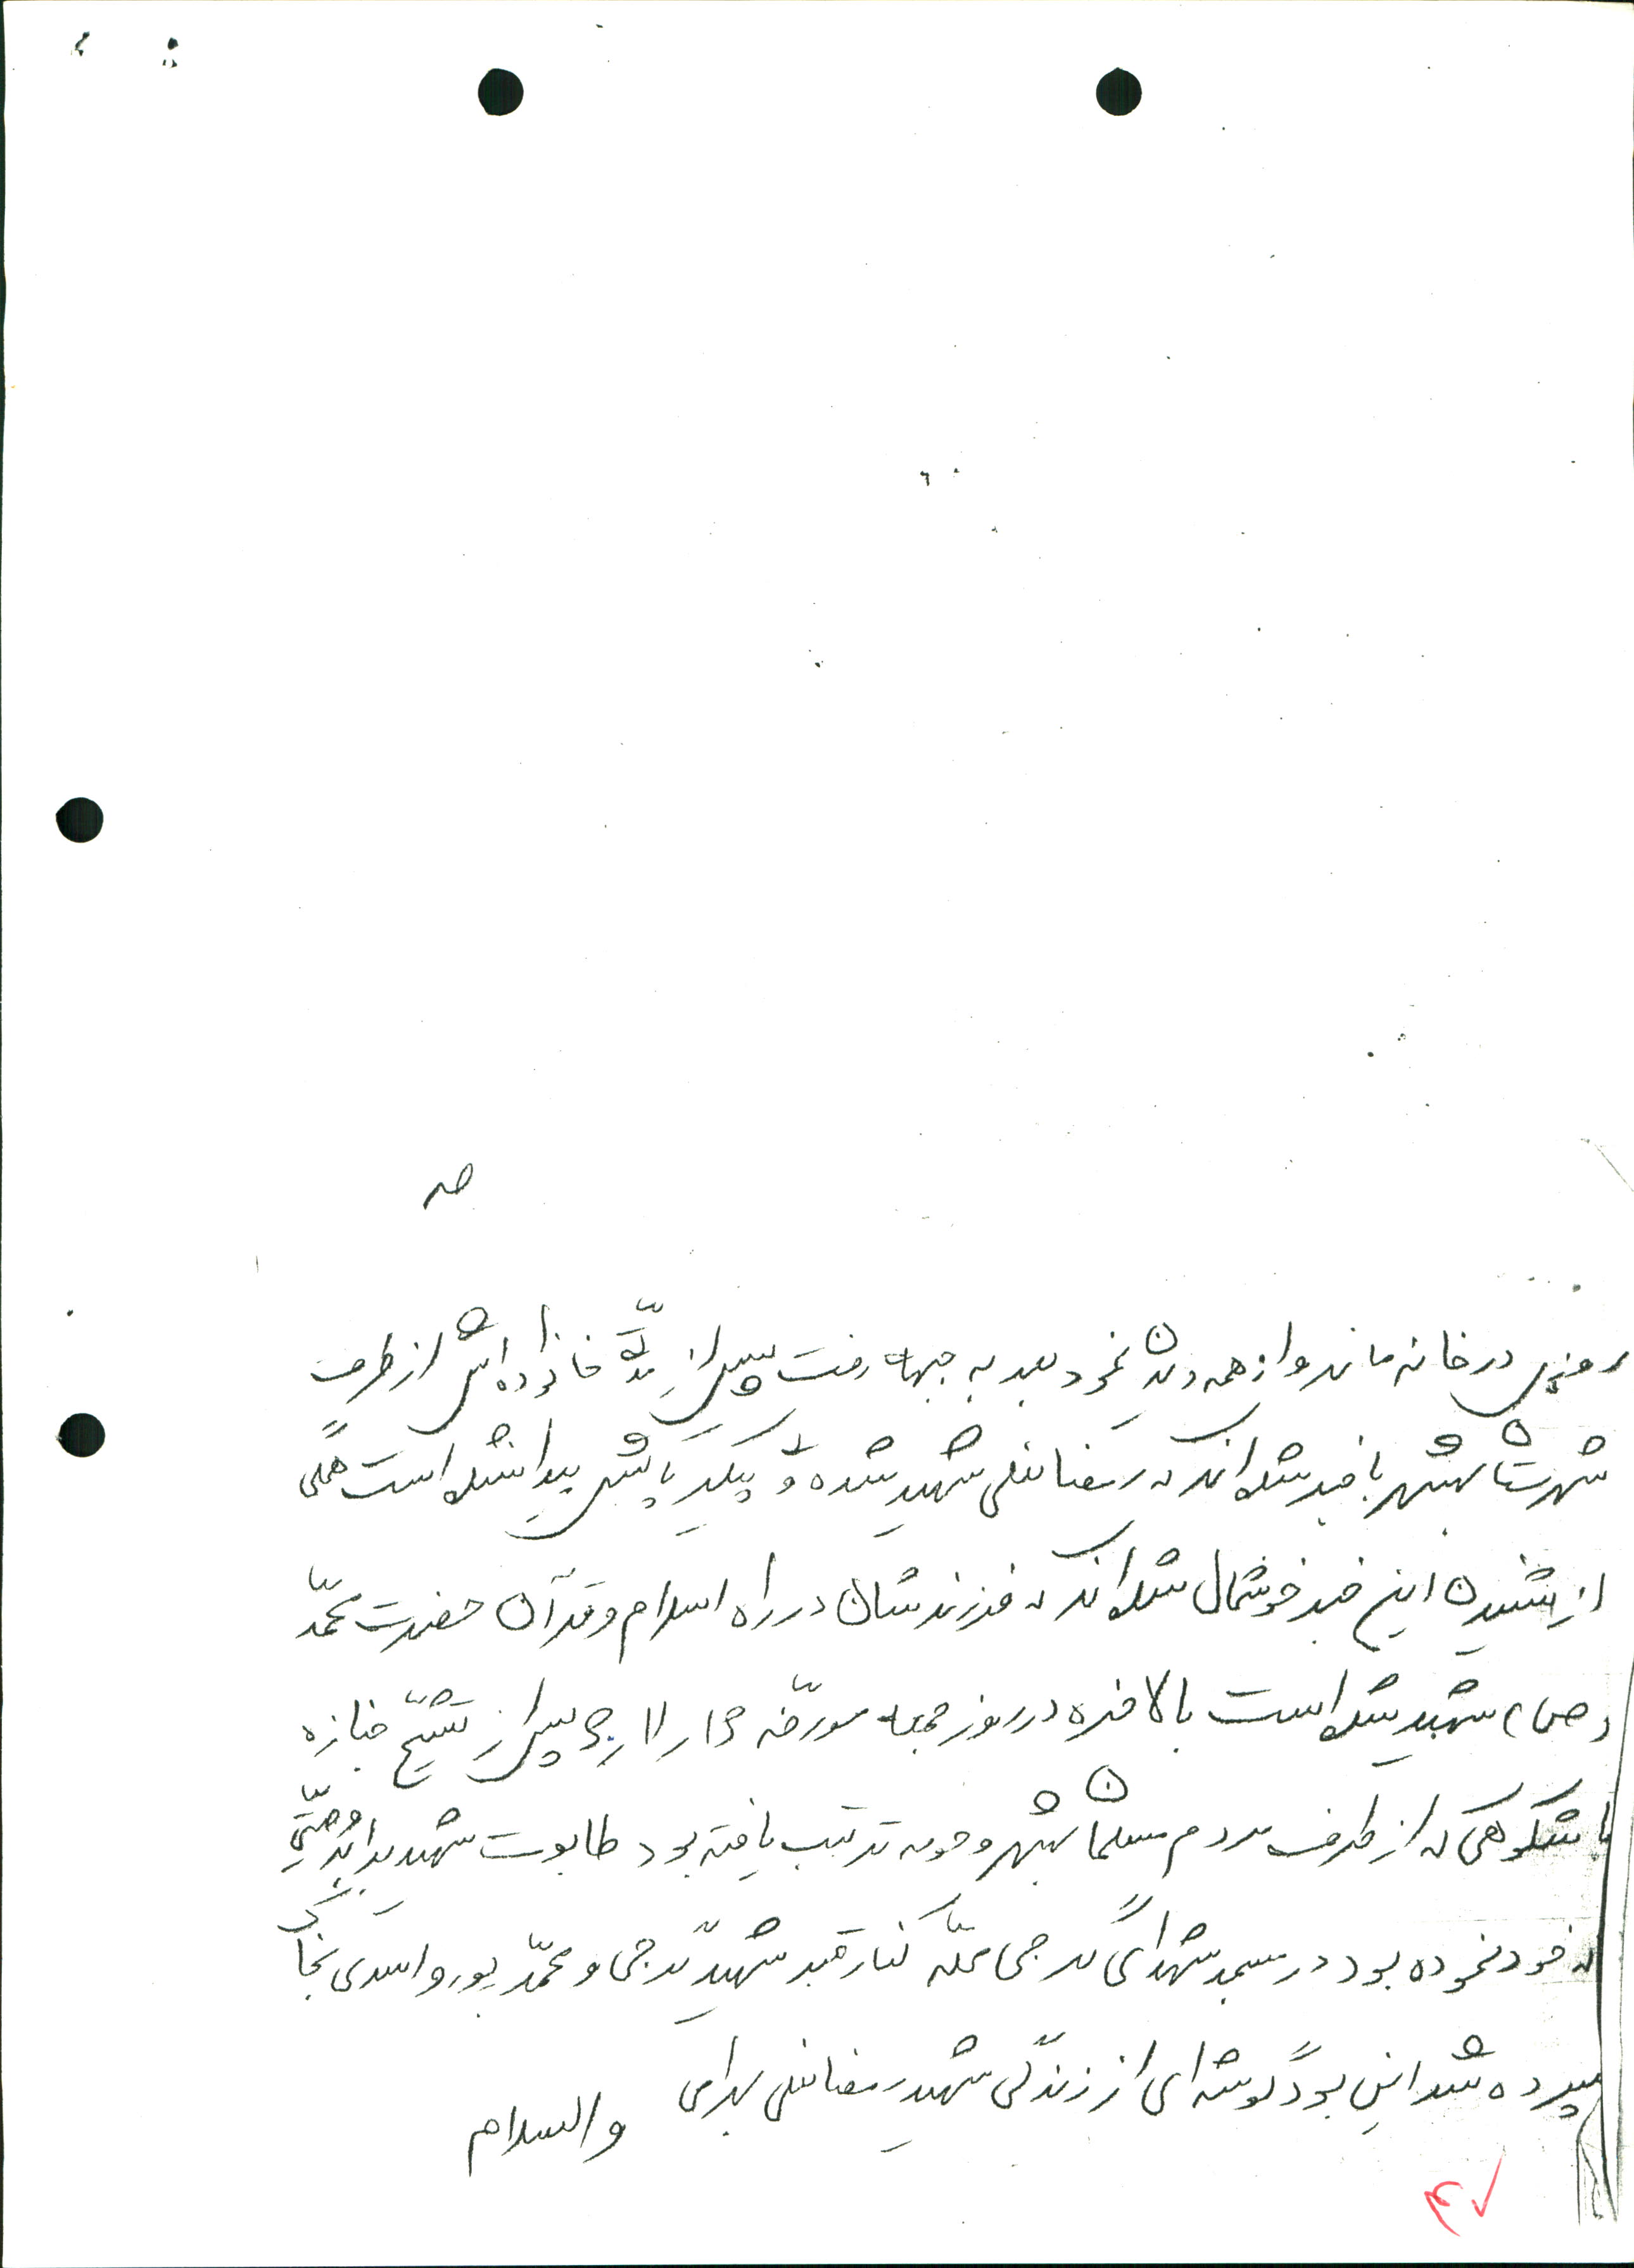 روزی در خانه ماند و از همه دیدن نمود بعد به جبهه رفت پس از مدتی خانواده اش از طرف
شهرستان بهشهر با خبر شده اند که رمضانعلی شهید شده و پیکر پاکش پیدا شده است همگی
از شنیدن این خبر خوشحال شده اند که فرزندشان در راه اسلام و قرآن حضرت محمّد
(ص) شهید شده است بالاخره در روز جمعه مورّخه پس از تشییع جنازه
با شکوهی که از طرف مردم مسلمان بهشهر و حومه ترتیب یافته بود طابوت شهید بنابر وصیّتی
که خود نموده بود در مسجد شهدای گرجی محلّه کنار قبر شهید گرجی و محمّدپور و اسدی بخاک
سپرده شد این بود گوشه ای از زندگی شهید رمضانعلی بهرامی والسلام